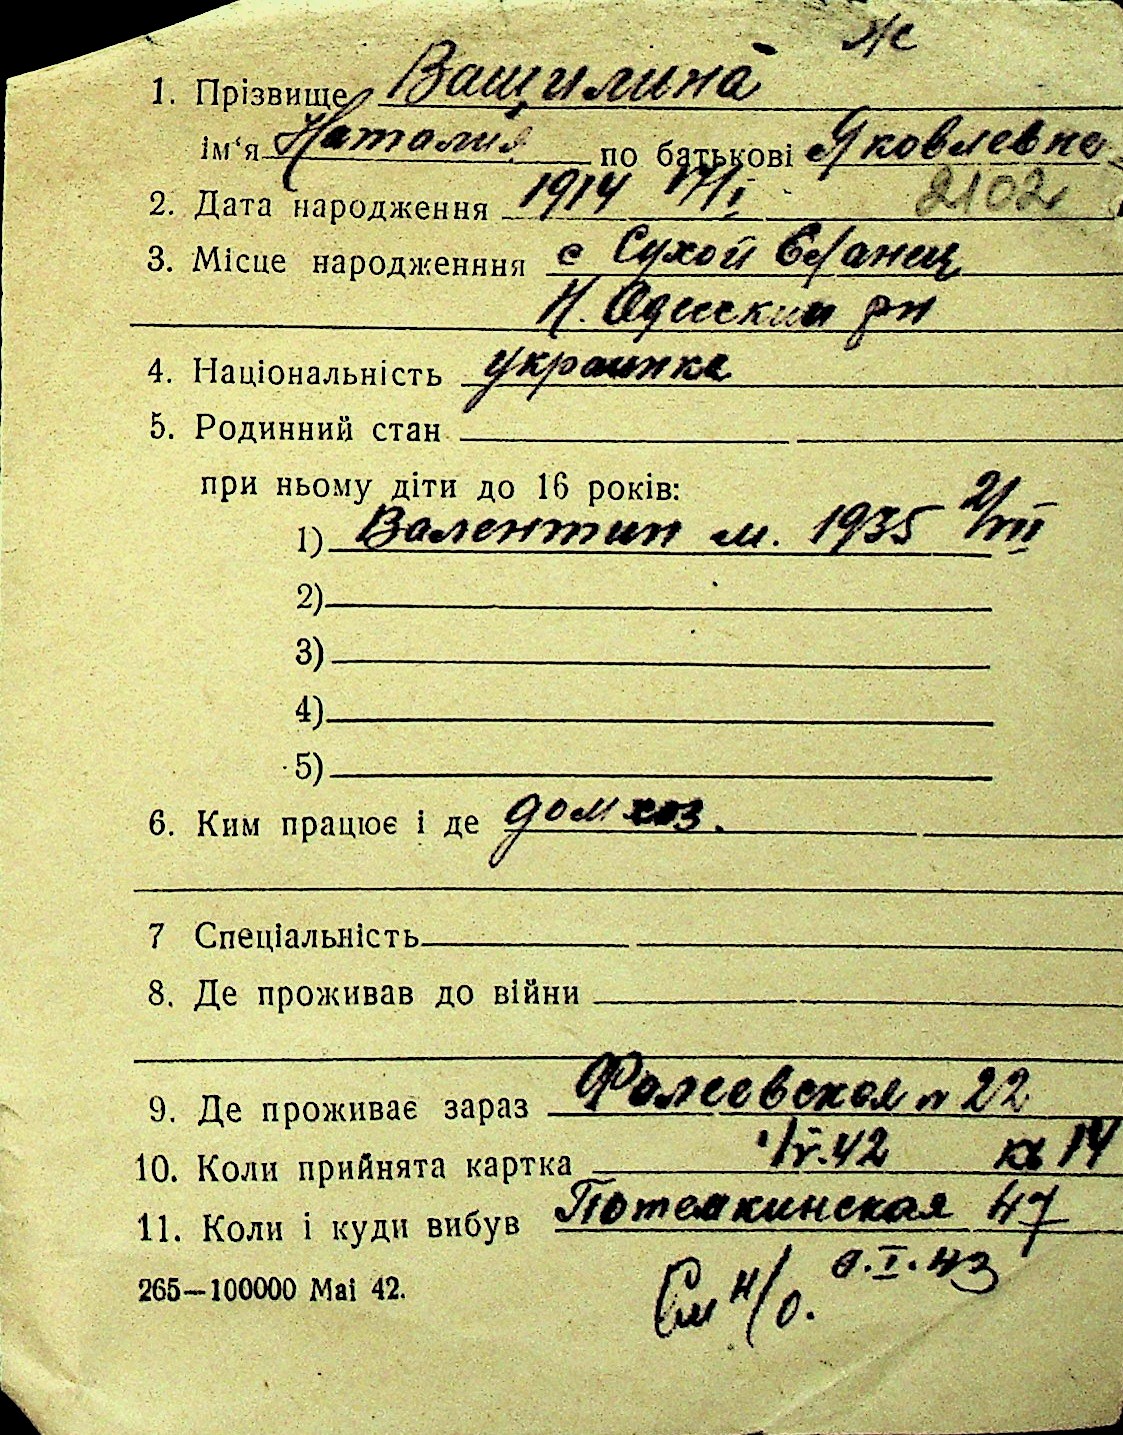 Ж
1. Прізвище Ващилина
ім'я Наталия по батькові Яковлевна
2. Дата народження 1914 17/I 2102
3. Місце народженння с Сухой Еланец
Н. Одесский рн
4. Національність украинка
5. Родинний стан
при ньому діти до 16 років:
1) Валентин м. 1935 2/VII
2)
3)
4)
5)
6. Ким працює і де дом хоз.
7 Спеціальність
8. Де проживав до війни
9. Де проживає зараз Фалеевская н 22
10. Коли прийнята картка 1/V.42 кв 14
11. Коли і куди вибув Потемкинская 47
265—100000 Маі 42. См н/о. I.43